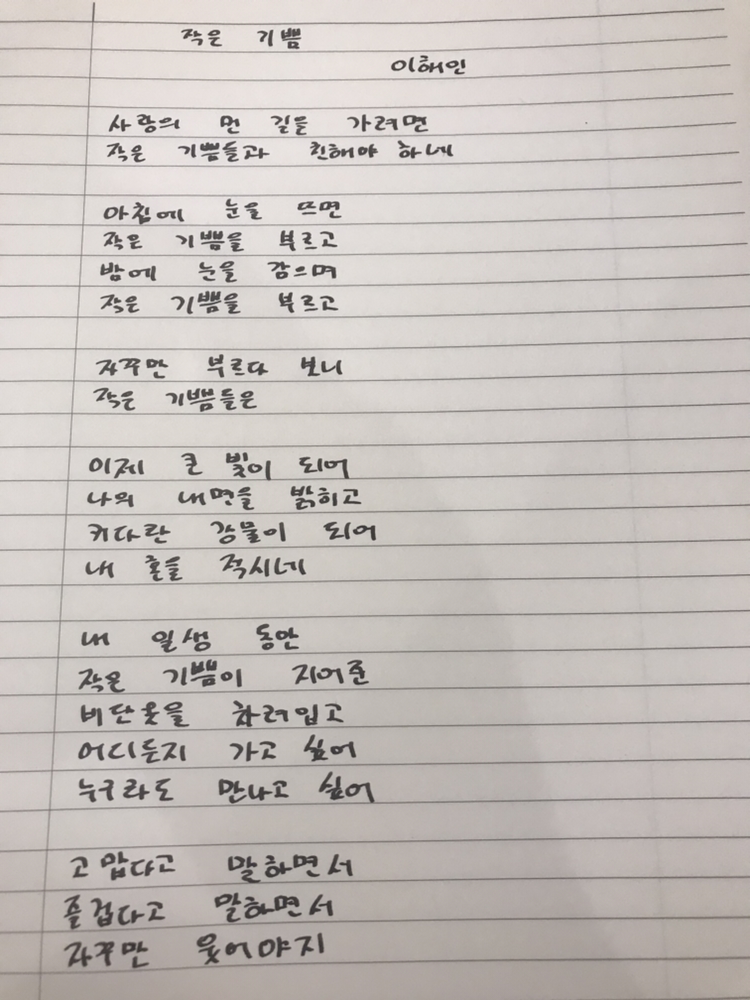 작은 기쁨
이해인
사랑의 먼 길을 가려면
작은 기쁨들과 친해야 하네
아침에 눈을 뜨면
작은 기쁨을 부르고
밤에 눈을 감으며
작은 기쁨을 부르고
자꾸만 부르다 보니
작은 기쁨들은
이제 큰 빛이 되어
나의 내면을 밝히고
커다란 강물이 되어
내 혼을 적시네
내 일생 동안
작은 기쁨이 지어준
비단옷을 차려입고
어디든지 가고 싶어
누구라도 만나고 싶어
고맙다고 말하면서
즐겁다고 말하면서
자꾸만 웃어야지